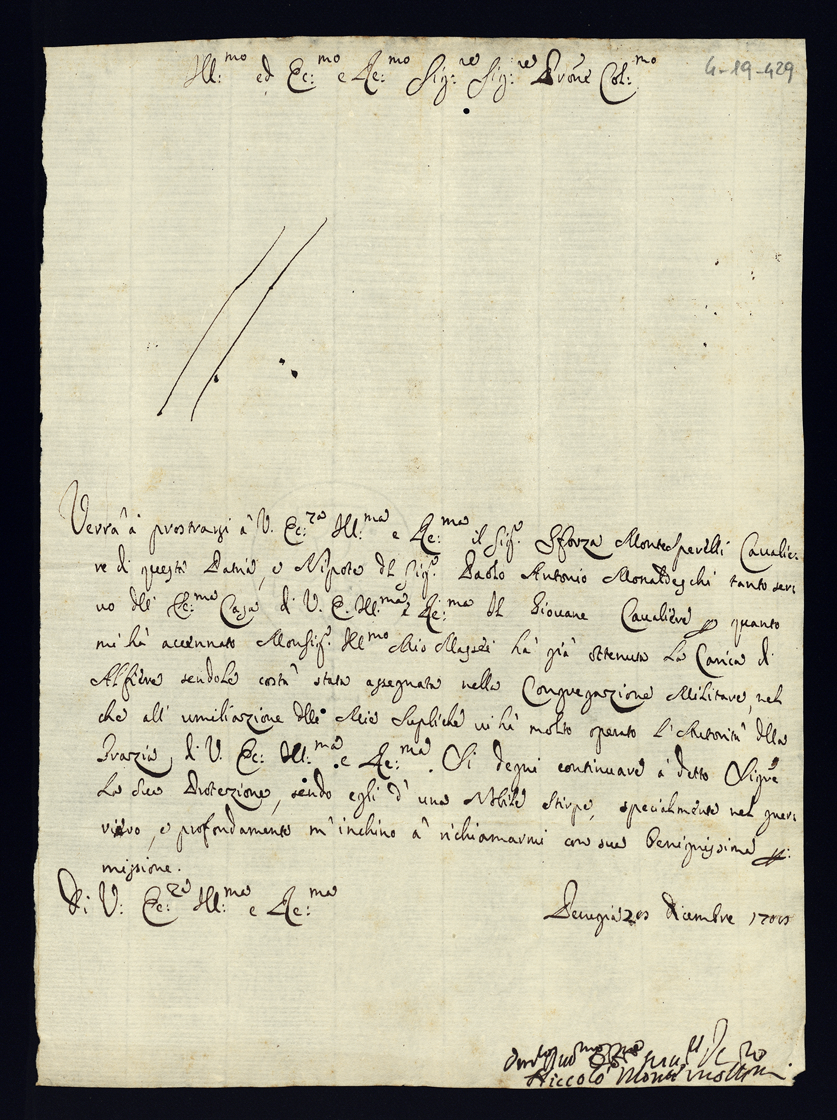 Ill:mo ed Ec:mo e Re:mo Sig:re Sig:re Prone Col:mo
4-19-429
Verrà à prostrarsi à V. Ec:za Ill:ma e Re:ma il Sigr. Sforza Montesperelli Cavalie:
re di questa Patria, e Nipote del Sigr. Paolo Antonio Monaldeschi tanto serv:
vo dell' Ec:ma Casa di V. E. Ill:ma e Re:ma Il Giovane Cavaliere, per quanto
mi hà accennato Monsigr. Ill:mo Mio hà già ottenuta la Carica di
Alfiere sendole costà stata assegnata nella Congregazione Militare, nel
che all' umiliazione delle Mie Supliche vi hà molto operato l'Autorità della
Grazia di V. Ec: Ill:ma e Re:ma. Si degni continuare à detto Sigre
la Sua Protezione, sendo egli d' una Nobile Stirpe, specialmente nel
e profondamente m'inchino à richiamarmi con sua Benignissima per:
missione.
Di V: Ec:za Ill:ma e Re:ma
Perugia Dicembre
Niccolò